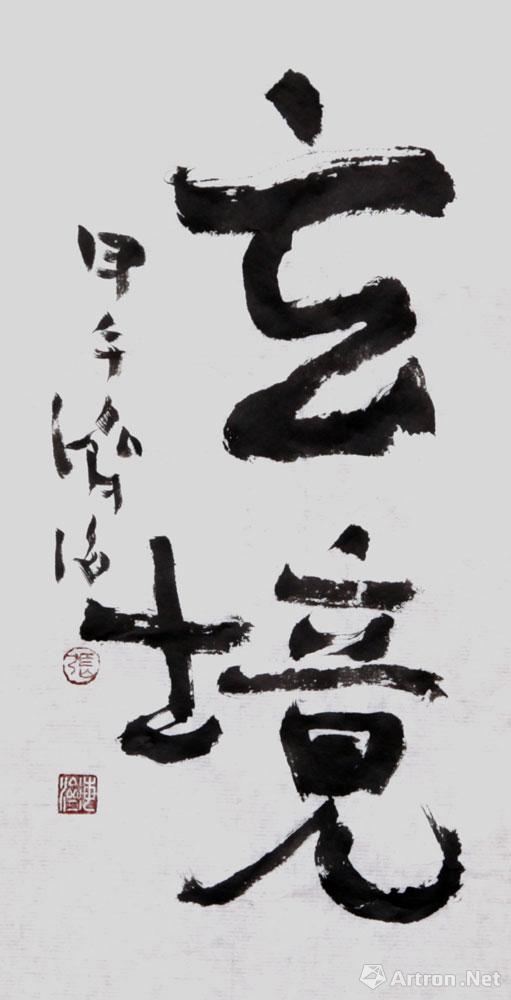 玄境
甲午
張
Artron.Net